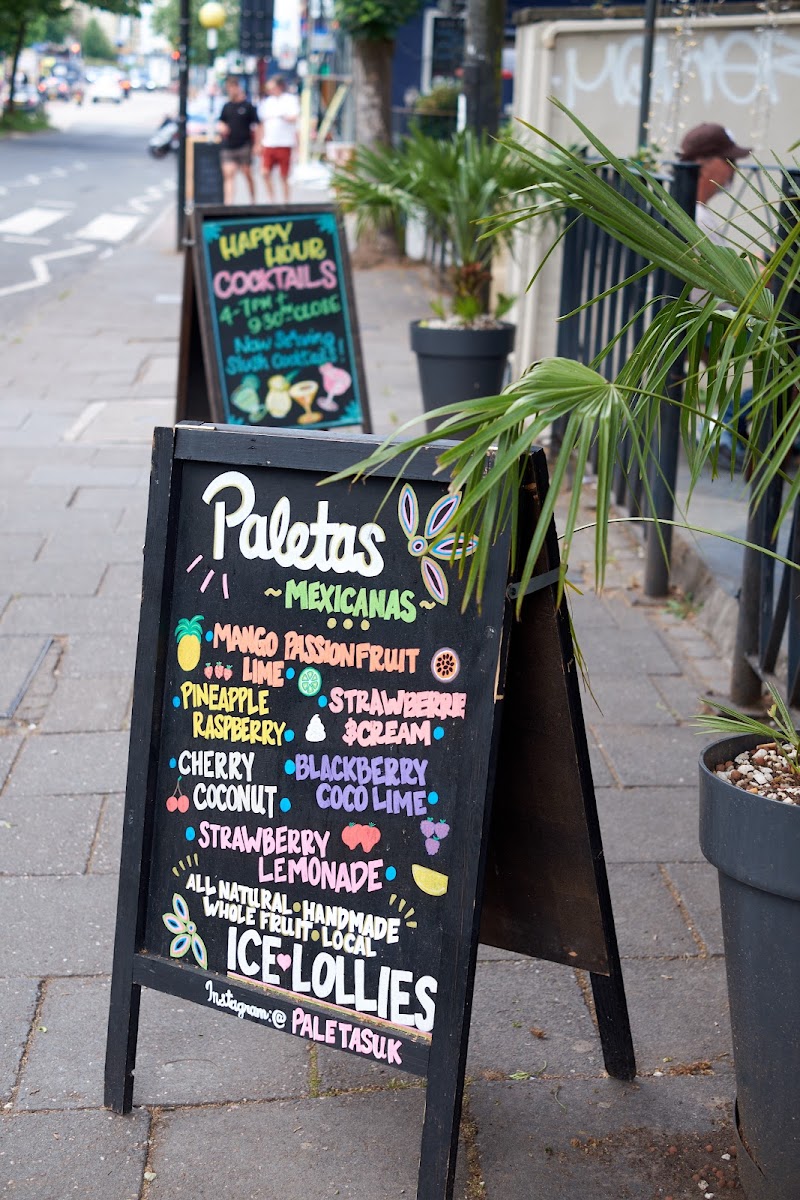 HAPPY
HOUR
COCKTAILS
4-7PM +
9:30PM CLOSE
Now Serving
Slush Cocktails!
Paletas
~MEXICANAS~
MANGO PASSIONFRUIT
LIME
PINEAPPLE
RASPBERRY
STRAWBERRIE
$CREAM
CHERRY
COCONUT
BLACKBERRY
COCO LIME
STRAWBERRY
LEMONADE
ALL NATURAL • HANDMADE
WHOLE FRUIT • LOCAL
ICE LOLLIES
Instagram:@ PALETASUK